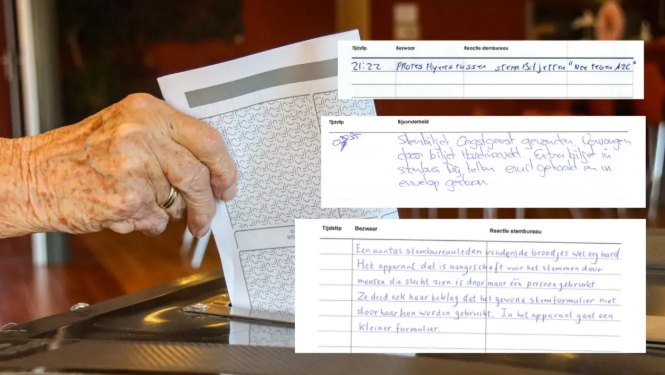 Tijdstip Bezwaar Reactie stembureau
21:22 Protes flyers tussen stembiljetten "Nee tegen AZC"
Tijdstip Bijzonderheid
Stembiljet Oegstgeest gevonden. Vervangen
door biljet Noordwijk. Extra biljet in
stembus bij tellen eruit gehaald en in
envelop gedaan.
Tijdstip Bezwaar Reactie stembureau
Een aantal stembureauleden vonden de broodjes wel erg hard
Het apparaat dat is aangeschaft voor het stemmen door
mensen die slecht zien is door maar één persoon gebruikt.
Ze deed ook haar beklag dat het gewone stemformulier niet
door haar kon worden gebruikt. In het apparaat gaat een
kleiner formulier.